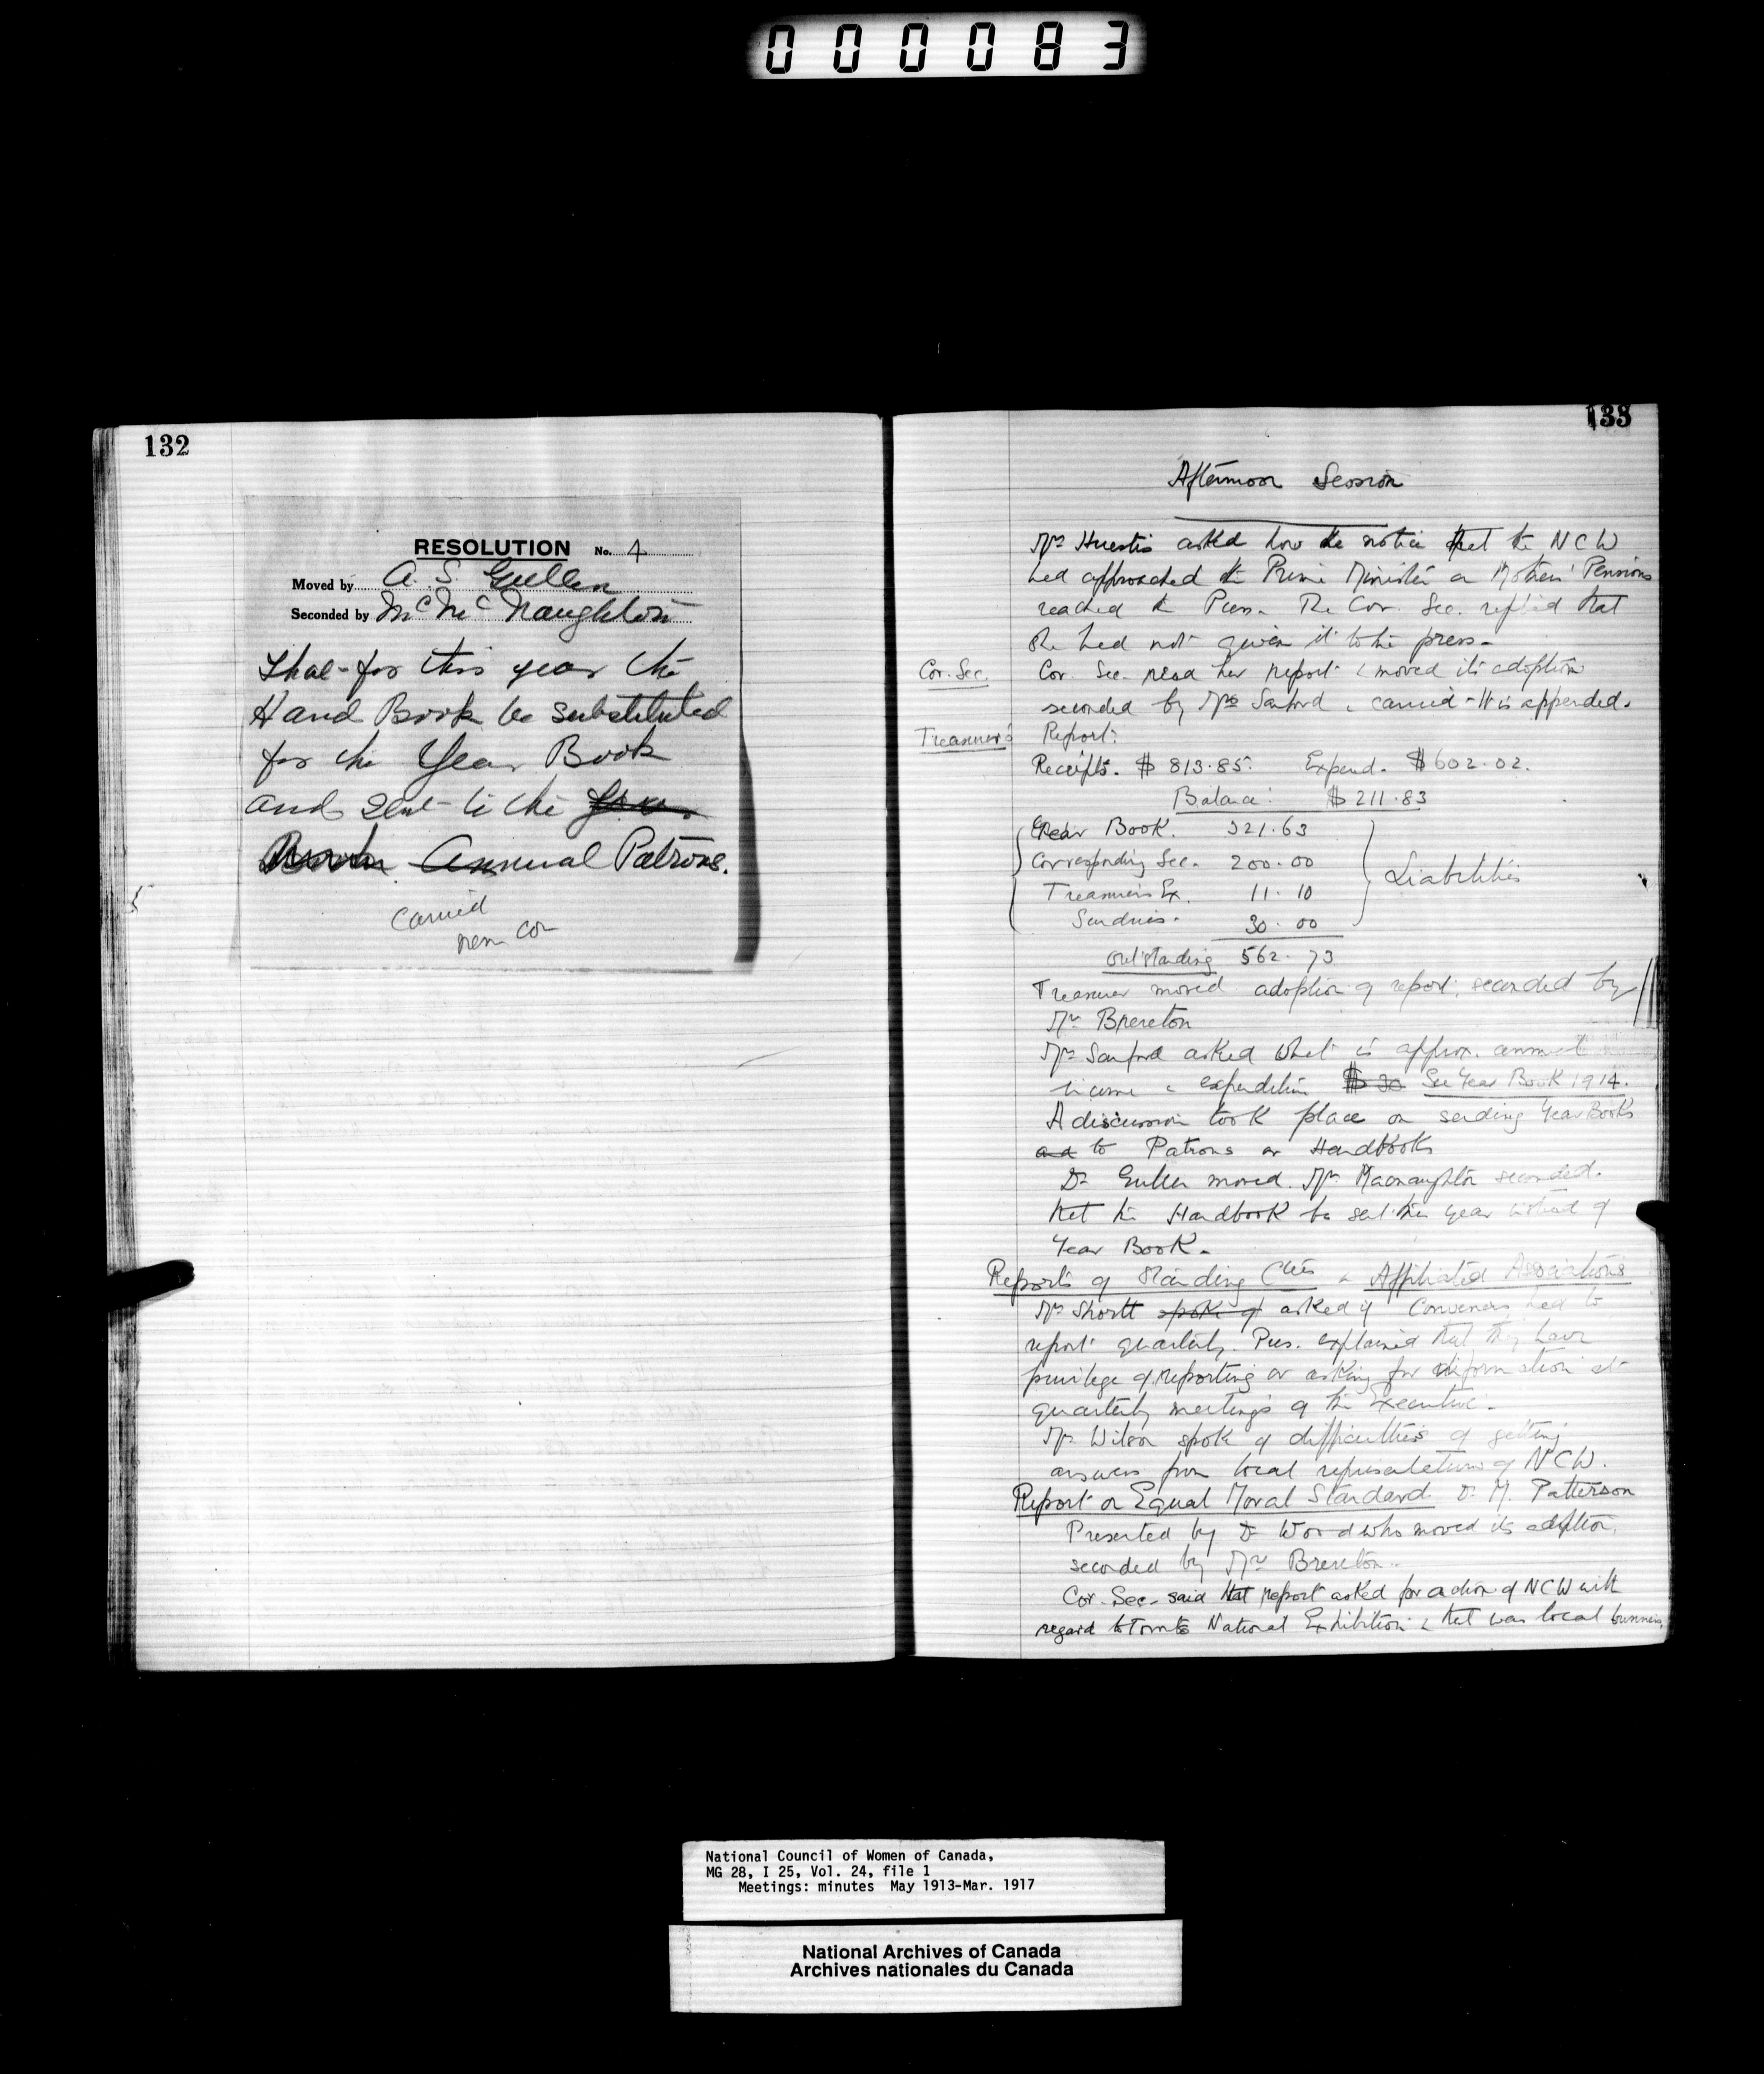 000083
132
RESOLUTION No. 4
Moved by A. S. Gullen
Seconded by Mc Mc Naughton
That for this year the
Hand Book be substituted
for the Year Book
and sent to the Year
Book Annual Patrons.
Carried
nem con
133
Afternoon Session
Mrs Huestis asked how the notice that the NCW
had approached the Prime Minister on Mothers' Pensions
reached the Press. The Cor. Sec. replied that
she had not given it to the press.
Cor. Sec. Cor. Sec. read her report & moved its adoption
seconded by Mrs Sanford & carried - It is appended.
Treasurer's Report:
Receipts. $ 813.85. Expend. $602.02.
Balance: $211.83
Year Book. 321.63
Corresponding Sec. 200.00
Treasurers Ex. 11.10
Sundries. 30.00
Liabilities
Outstanding 562.73
Treasurer moved adoption of report, seconded by
Mrs Brereton
Mrs Sanford asked what is approx. amount
income & expenditure $ 30 See Year Book 1914.
A discussion took place on sending Year Books
and to Patrons or Handbooks
Dr Gullen moved. Mrs Macnaughton seconded.
that the Handbook be sent this year instead of
Year Book.
Reports of Standing Ctees & Affiliated Associations
Mrs Shortt spoke of asked if Conveners had to
report quarterly. Pres. explained that they have
privilege of reporting or asking for information at
quarterly meetings of the Executive.
Mrs Wilson spoke of difficulties of getting
answers from local representatives of NCW.
Report on Equal Moral Standard. Dr M. Patterson
Presented by Dr Wood who moved its adoption,
seconded by Mrs Brereton.
Cor. Sec. said that report asked for action of NCW with
regard to Toronto National Exhibition & that was local business,
National Council of Women of Canada,
MG 28, I 25, Vol. 24, file 1
Meetings: minutes May 1913-Mar. 1917
National Archives of Canada
Archives nationales du Canada